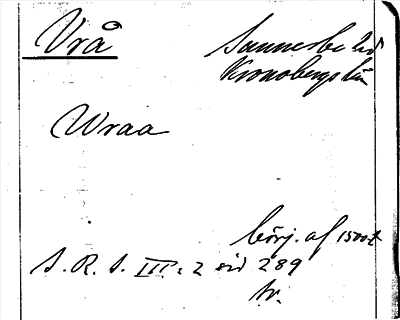 Vrå
Sunnerbo hd
Kronobergs län
Wraa
börj. af 1500t
S. R. S. III: 2 sid 289
tr.